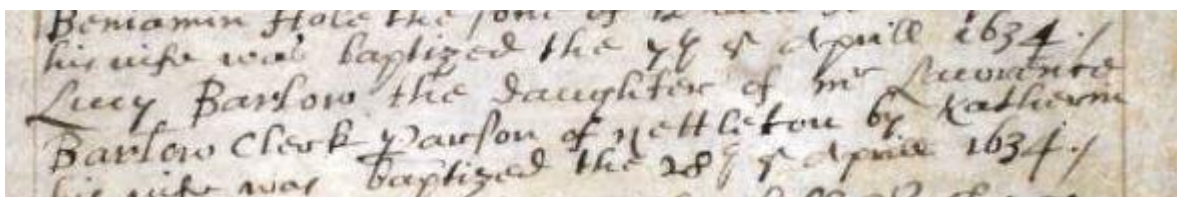 Beniamin Hole the sonn of
his wife was baptized the of Aprill 1634./
Lucy Barlow the daughter of mr Lawrance
Barlow Clerk Parson of Nettleton by Katherin
his wife was baptized the 28th of Aprill 1634./